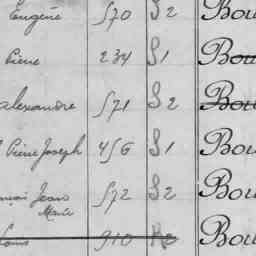 Eugène 570 S2 Bou
Pierre 234 S1 Bou
Alexandre 571 S2 Bou
Pierre Joseph 456 S1 Bou
Jean 572 S2 Bou
Marie
Louis 910 Bou